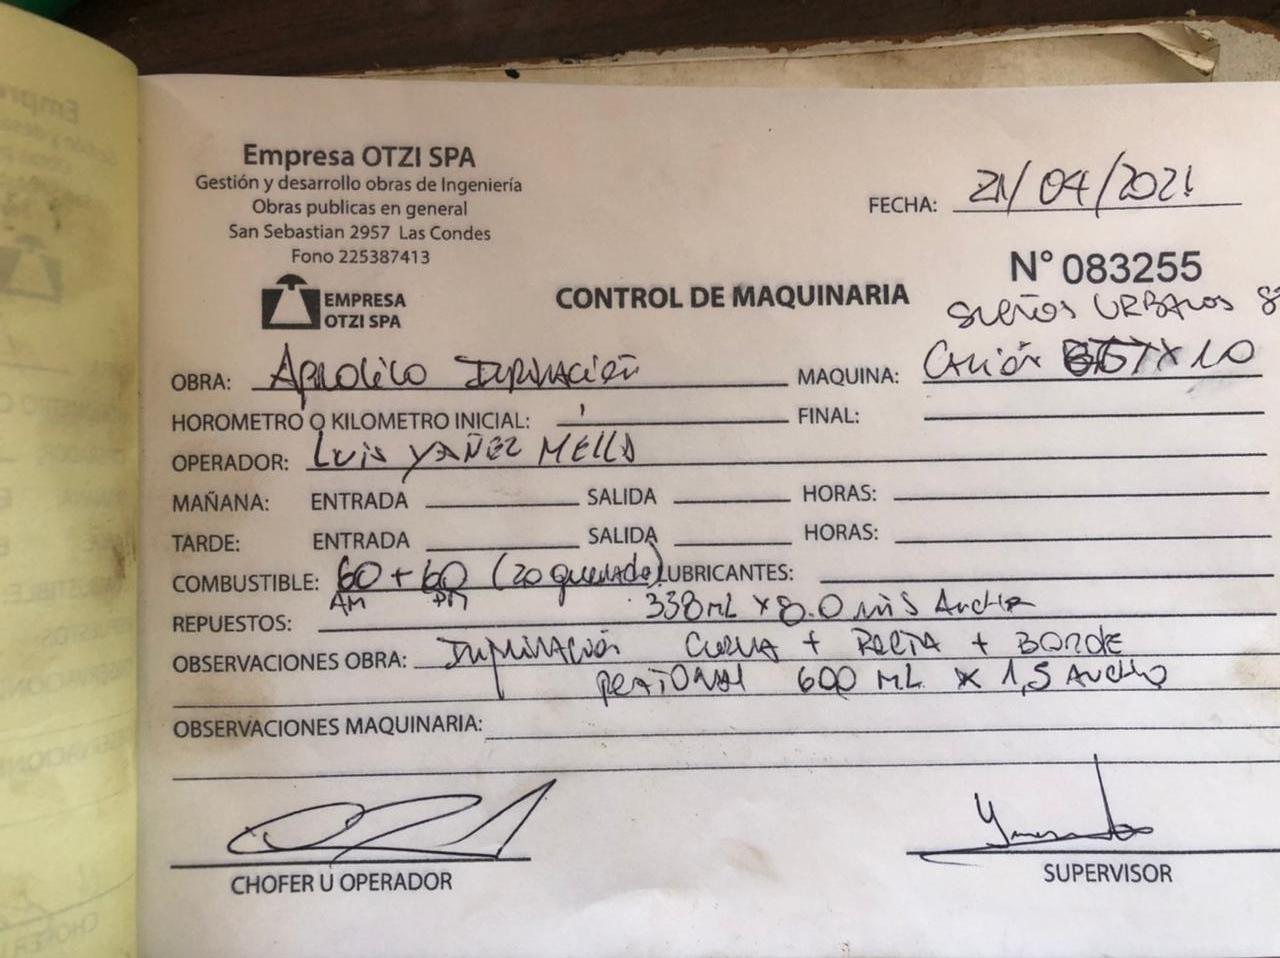 Empresa OTZI SPA
Gestión y desarrollo obras de Ingeniería
Obras publicas en general
San Sebastian 2957 Las Condes
Fono 225387413
EMPRESA
OTZI SPA
FECHA: 21/04/2021
N° 083255
CONTROL DE MAQUINARIA
SUEÑOS URBANOS
OBRA: IMPRIMACIÓN
MAQUINA: CAMIÓN
HOROMETRO O KILOMETRO INICIAL:
FINAL:
OPERADOR: LUIS YAÑEZ MELLA
MAÑANA: ENTRADA SALIDA HORAS:
TARDE: ENTRADA SALIDA HORAS:
COMBUSTIBLE: 60 + 60 (20 quemado) LUBRICANTES:
AM PM
338 ML x 8.0 MTS ANCHO
REPUESTOS:
OBSERVACIONES OBRA: IMPRIMACIÓN CURVA + RECTA + BORDE
PEATONAL 600 ML x 1,5 ANCHO
OBSERVACIONES MAQUINARIA:
CHOFER U OPERADOR
SUPERVISOR